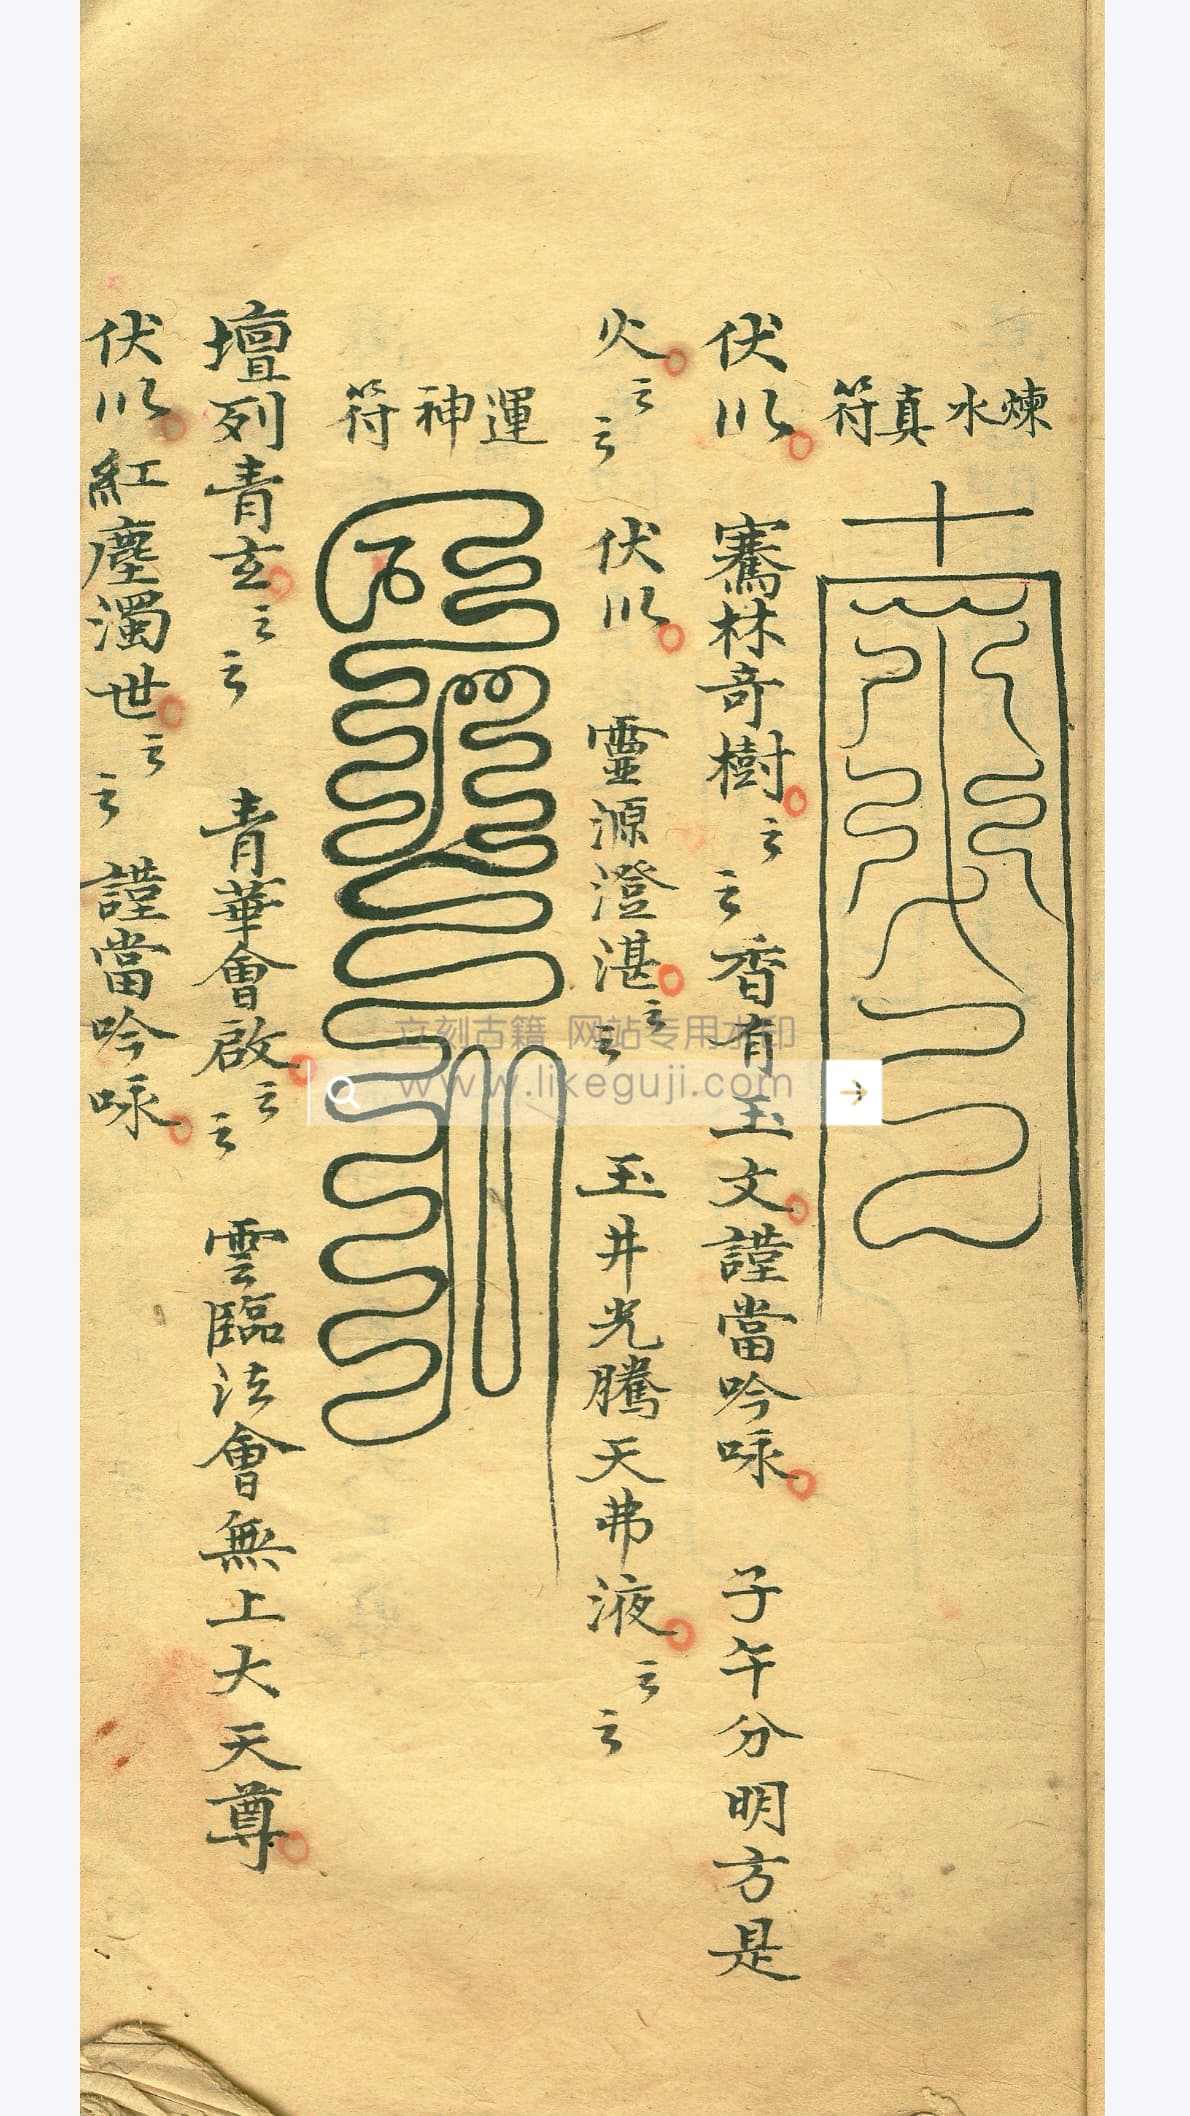 煉水真符
伏以騫林奇樹云云香有玉文謹當吟咏 子午分明方是
火云云 伏以 靈源澄湛云云 玉井光騰天弗液云云
運神符
壇列青玄云云 青華會啟云云 雲臨法會無上大天尊
伏以紅塵濁世云云 謹當吟咏
立刻古籍 网站专用水印
www.likeguji.com